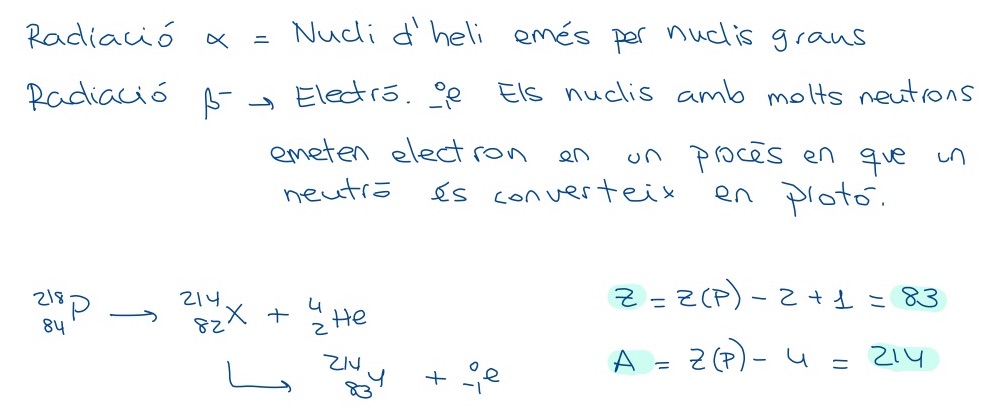 Radiació α = Nucli d'heli emés per nuclis graus
Radiació β⁻ → Electrō. ⁰₋₁e Els nuclis amb molts neutrons
emeten electron en un procēs en que un
neutrō és converteix en protó.
²¹⁸₈₄P → ²¹⁴₈₂X + ⁴₂He
↳ ²¹⁴₈₃Y + ⁰₋₁e
Z = Z(P) - 2 + 1 = 83
A = Z(P) - 4 = 214